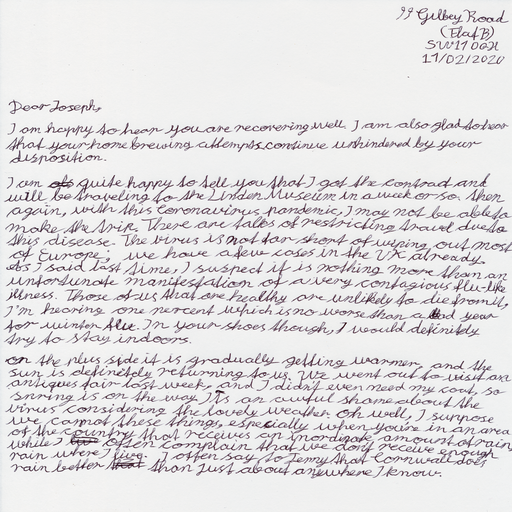 99 Gilbey Road
(Flat B)
SW17 0QH
17/02/2020
Dear Joseph,
I am happy to hear you are recovering well. I am also glad to hear
that your home brewing attempts continue unhindered by your
disposition.
I am quite happy to tell you that I got the contract and
will be traveling to the Linden Museum in a week or so. Then
again, with this coronavirus pandemic, I may not be able to
make the trip. There are talks of restricting travel due to
this disease. The virus is not far short of wiping out most
of Europe, we have a few cases in the UK already.
As I said last time, I suspect it is nothing more than an
unfortunate manifestation of a very contagious flu-like
illness. Those of us that are healthy are unlikely to die from it,
I'm hearing one percent which is no worse than a bad year
for winter flu. In your shoes though, I would definitely
try to stay indoors.
On the plus side it is gradually getting warmer, and the
sun is definitely returning to us. We went out to visit an
antiques fair last week, and I didn't even need my coat, so
spring is on the way. It's an awful shame about the
virus considering the lovely weather. Oh well, I suppose
we cannot these things, especially when you're in an area
of the country that receives an inordinate amount of rain,
while I often complain that we don't receive enough
rain where I live. I often say to Jenny that Cornwall does
rain better than just about anywhere I know.